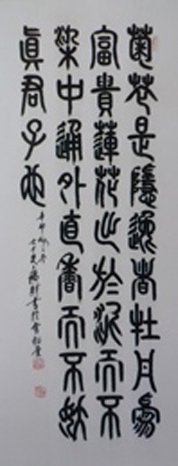 菊花是隱逸者牡丹為
富貴蓮花出於泥而不
染中通外直香而不妖
眞君子也